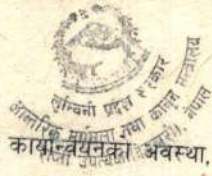 लुम्बिनी प्रदेश सरकार
आन्तरिक मामिला तथा कानून मन्त्रालय
कार्यान्वयनको अवस्था,